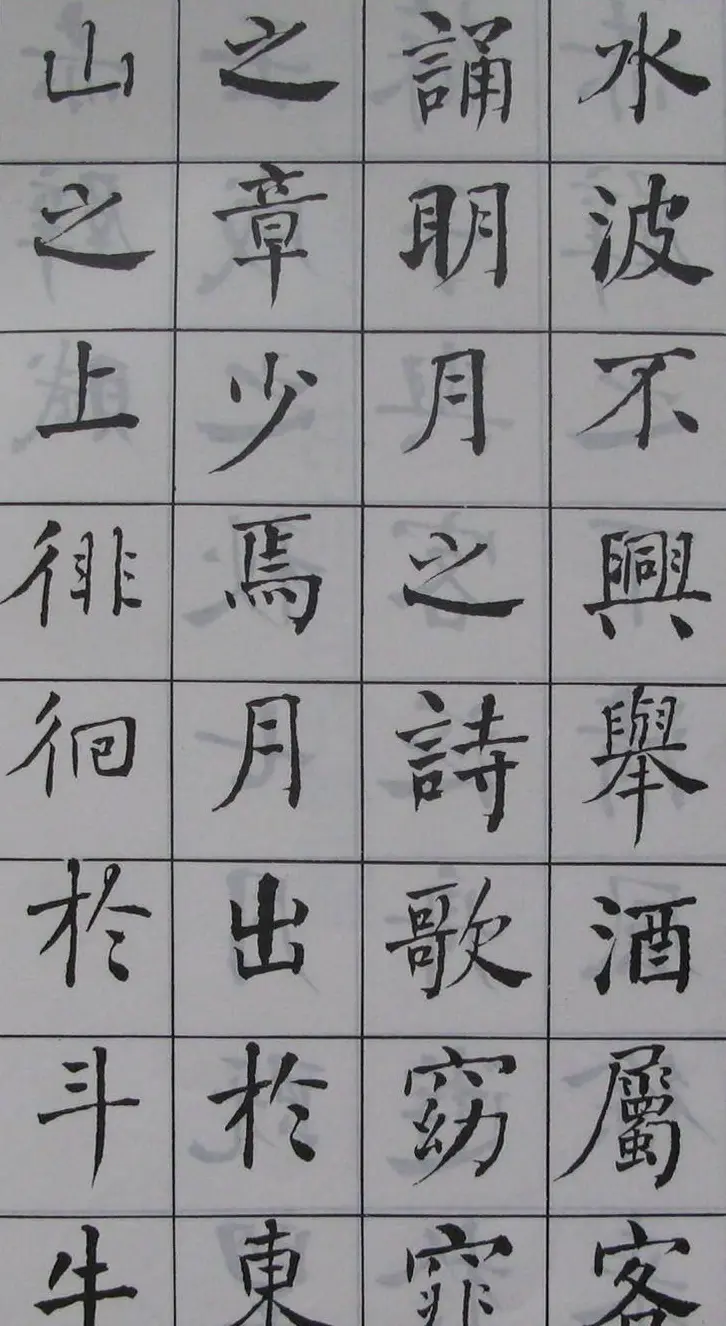 水波不興舉酒屬客
誦明月之詩歌窈窕
之章少焉月出於東
山之上徘徊於斗牛